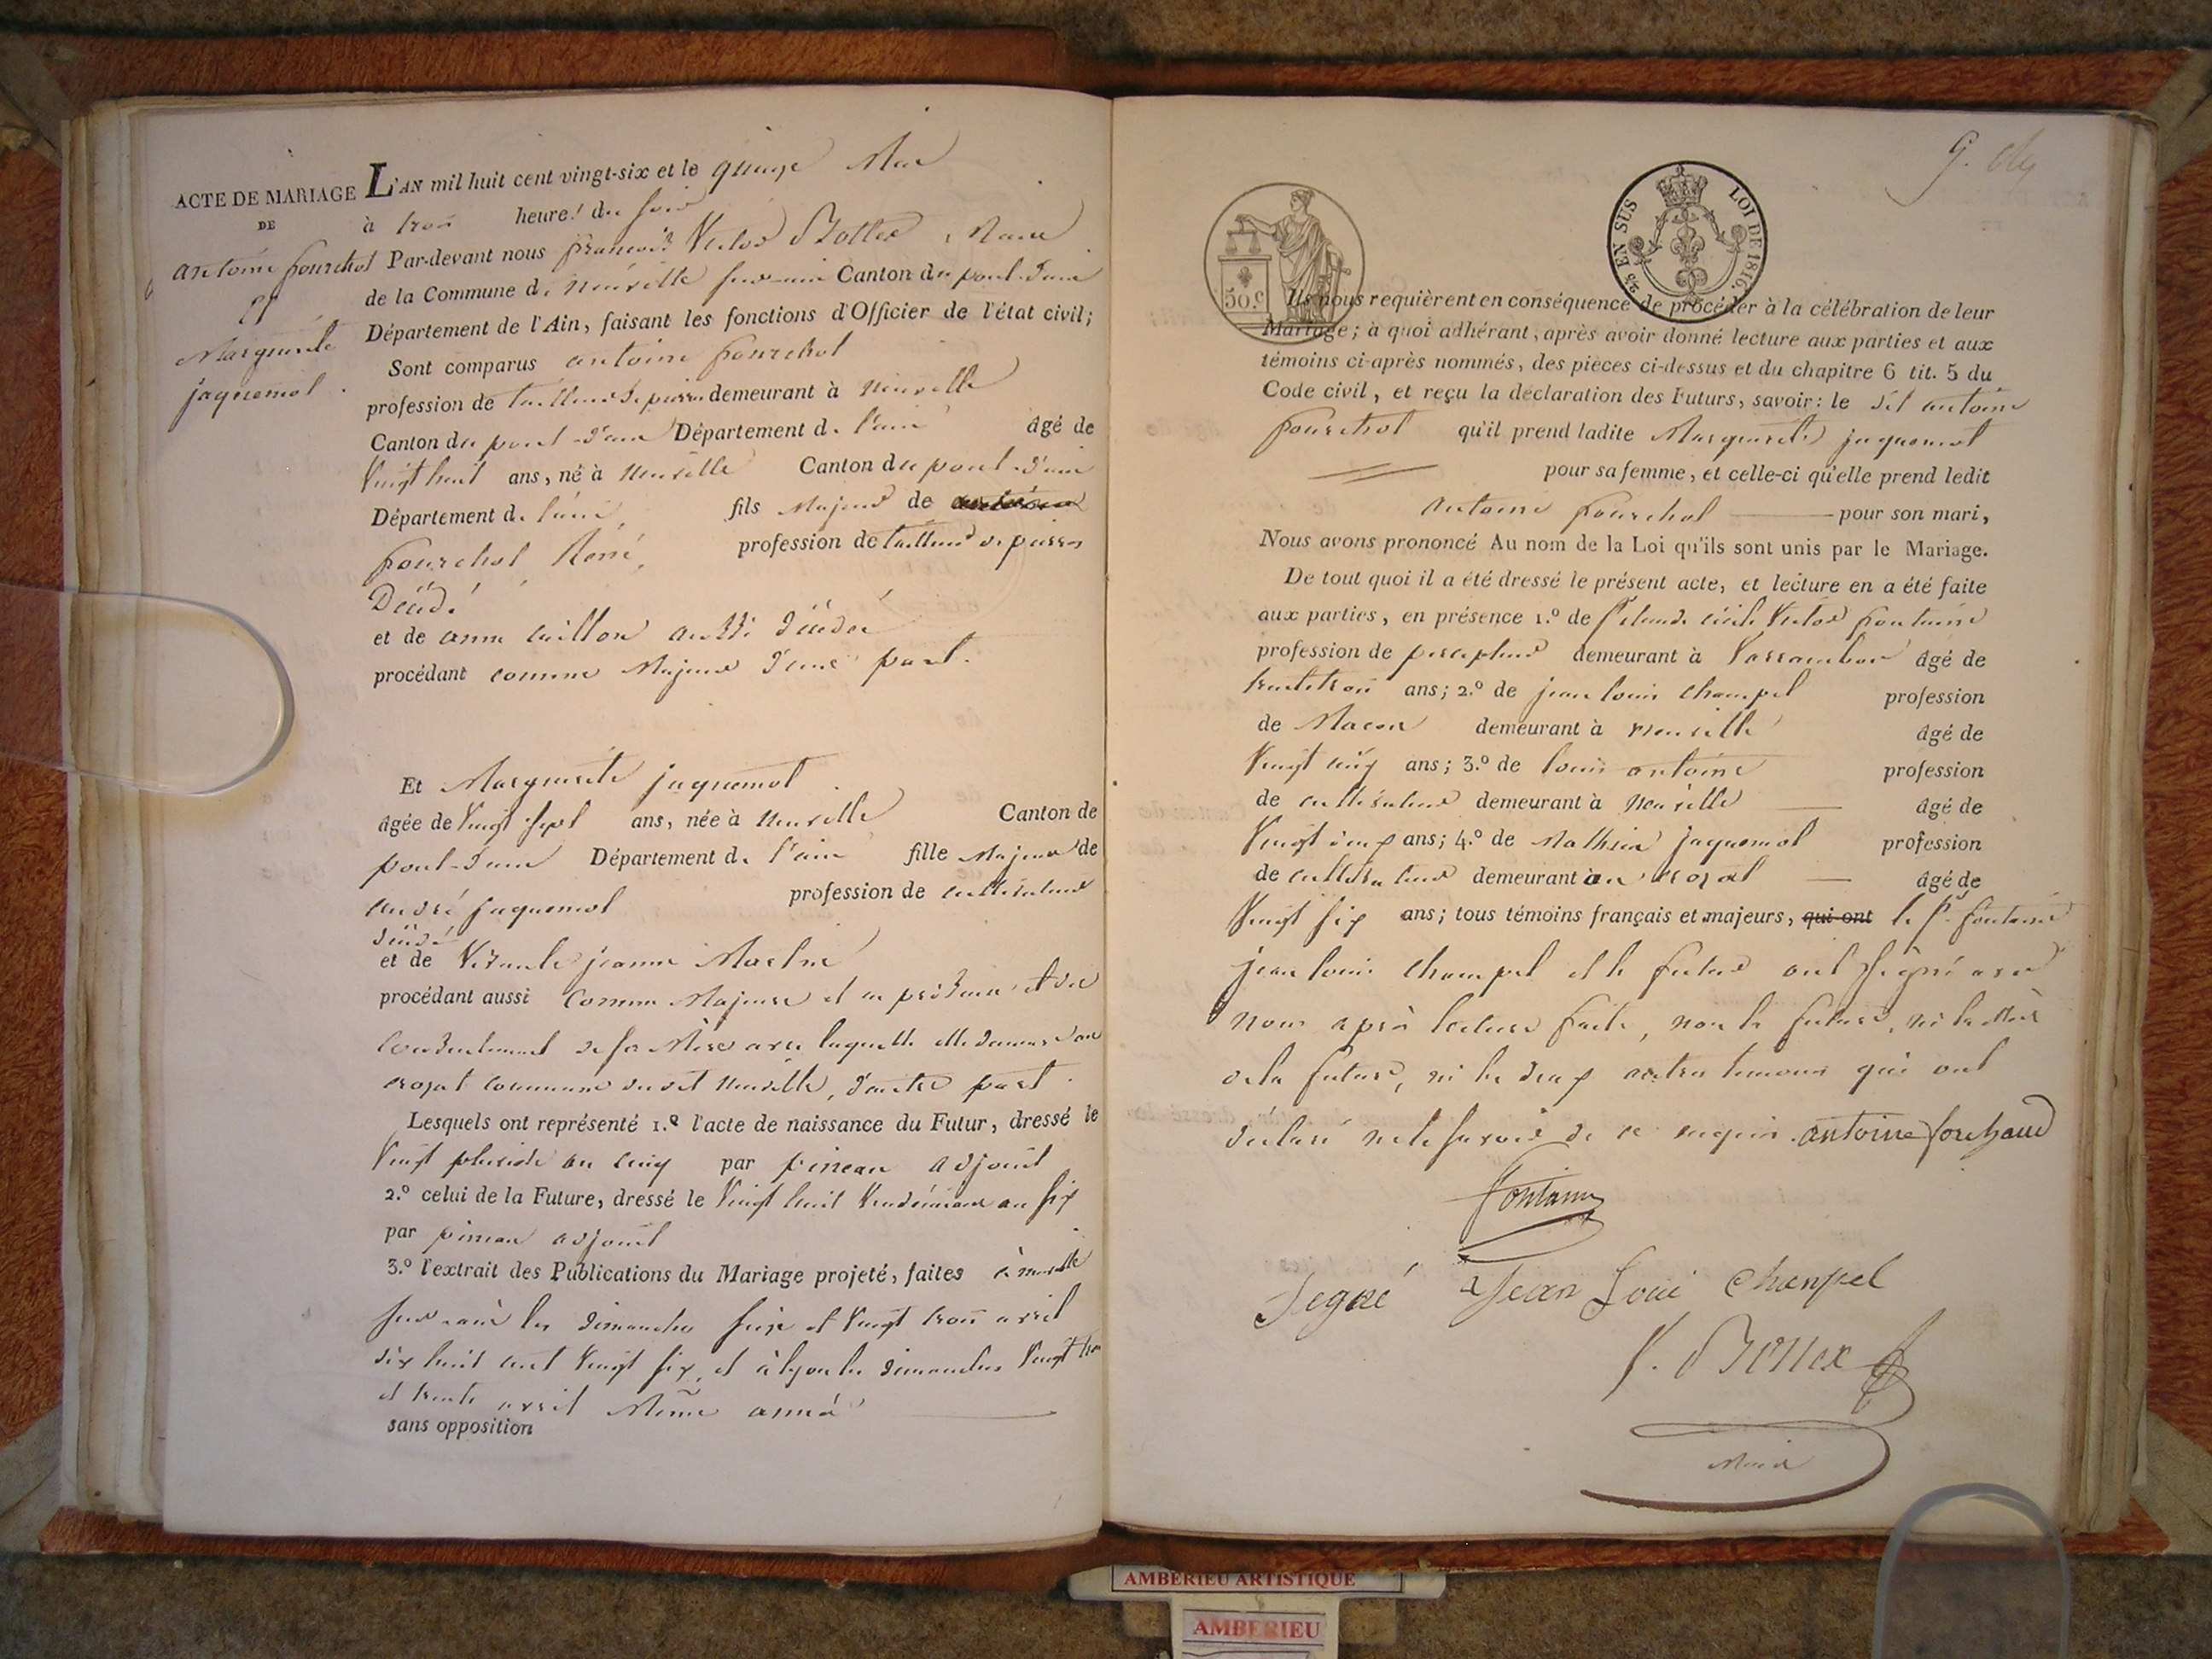 ACTE DE MARIAGE
DE
antoine fourchot
et
Marguerite
jaquemot
L'AN mil huit cent vingt-six et le quinze Mai
à trois heures du soir
Par-devant nous françois Victor Bottex, Maire
de la Commune de neuville sur-ain Canton du pont-d'ain
Département de l'Ain, faisant les fonctions d'Officier de l'état civil;
Sont comparus antoine fourchot
profession de tailleur de pierre demeurant à neuville
Canton du pont-d'ain Département de l'ain âgé de
Vingt huit ans, né à neuville Canton du pont-d'ain
Département de l'ain, fils Majeur de
fourchot René, profession de tailleur de pierres
Décédé
et de anne caillon aussi décédée
procédant comme Majeur d'une part.
Et Marguerite jaquemot
âgée de Vingt sept ans, née à neuville Canton de
pont-d'ain Département de l'ain fille Majeure de
andré jaquemot profession de cultivateur
décédé
et de Vivante jeanne Martin
procédant aussi comme Majeure et en présence et du
consentement de sa Mère avec laquelle elle demeure au
crozat commune dudit neuville, d'autre part.
Lesquels ont représenté 1.º l'acte de naissance du Futur, dressé le
Vingt pluviose an cinq par pineau adjoint
2.º celui de la Future, dressé le Vingt huit Vendémiaire an six
par pineau adjoint
3.º l'extrait des Publications du Mariage projeté, faites à neuville
sur-ain les dimanches seize et Vingt trois avril
dix huit cent Vingt six, et à lyon les dimanches Vingt trois
et trente avril Même année
sans opposition
50 c
25 EN SUS LOI DE 1816.
Ils nous requièrent en conséquence de procéder à la célébration de leur
Mariage; à quoi adhérant, après avoir donné lecture aux parties et aux
témoins ci-après nommés, des pièces ci-dessus et du chapitre 6 tit. 5 du
Code civil, et reçu la déclaration des Futurs, savoir: le dit antoine
fourchot qu'il prend ladite Marguerite jaquemot
pour sa femme, et celle-ci qu'elle prend ledit
antoine fourchot pour son mari,
Nous avons prononcé Au nom de la Loi qu'ils sont unis par le Mariage.
De tout quoi il a été dressé le présent acte, et lecture en a été faite
aux parties, en présence 1.º de Victor fontaine
profession de percepteur demeurant à Varambon âgé de
trente trois ans; 2.º de jean louis champel profession
de Macon demeurant à neuville âgé de
Vingt cinq ans; 3.º de louis antoine profession
de cultivateur demeurant à neuville âgé de
Vingt cinq ans; 4.º de Mathieu jaquemot profession
de cultivateur demeurant au crozat âgé de
Vingt six ans; tous témoins français et majeurs, qui ont le s.r fontaine
jean louis champel et le futur ont signé avec
nous après lecture faite, non la future, ni la Mère
de la future, ni les deux autres temoins qui ont
declaré ne le savoir de ce enquis. antoine forchaud
fontaine
Segné Jean Loui Chanpel
V. Bottex
Maire
AMBERIEU ARTISTIQUE
AMBERIEU